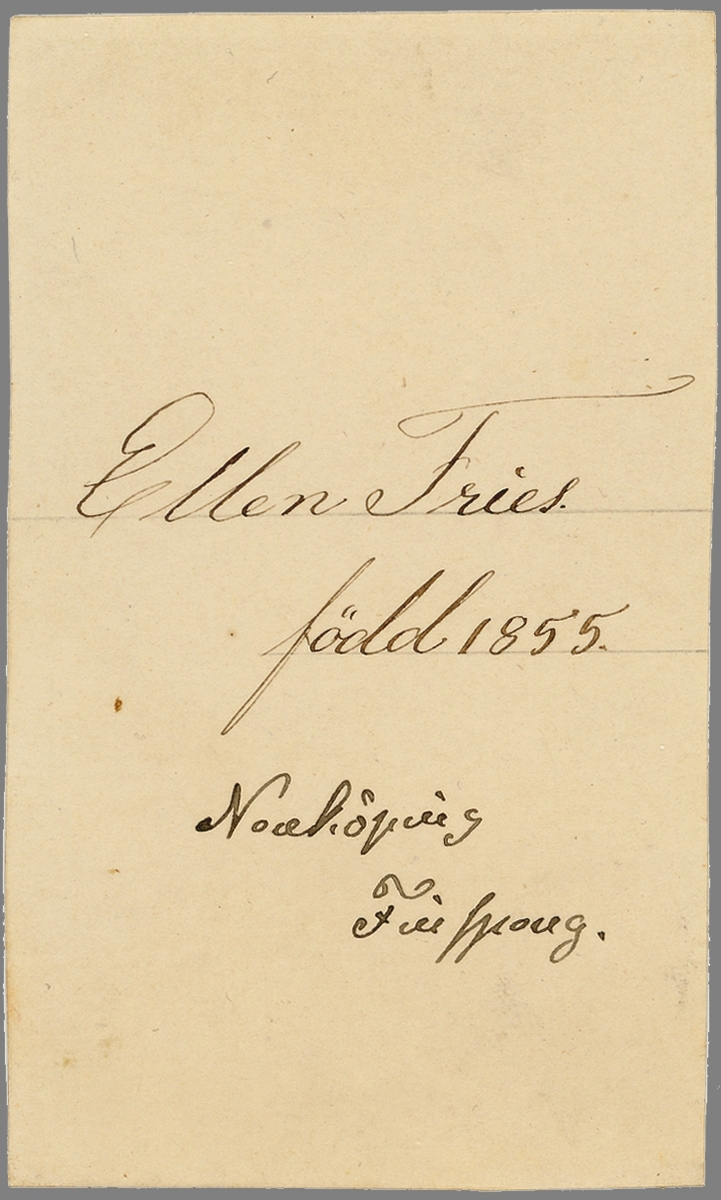 Ellen Fries.
född 1855.
Norrköping
Finspong.